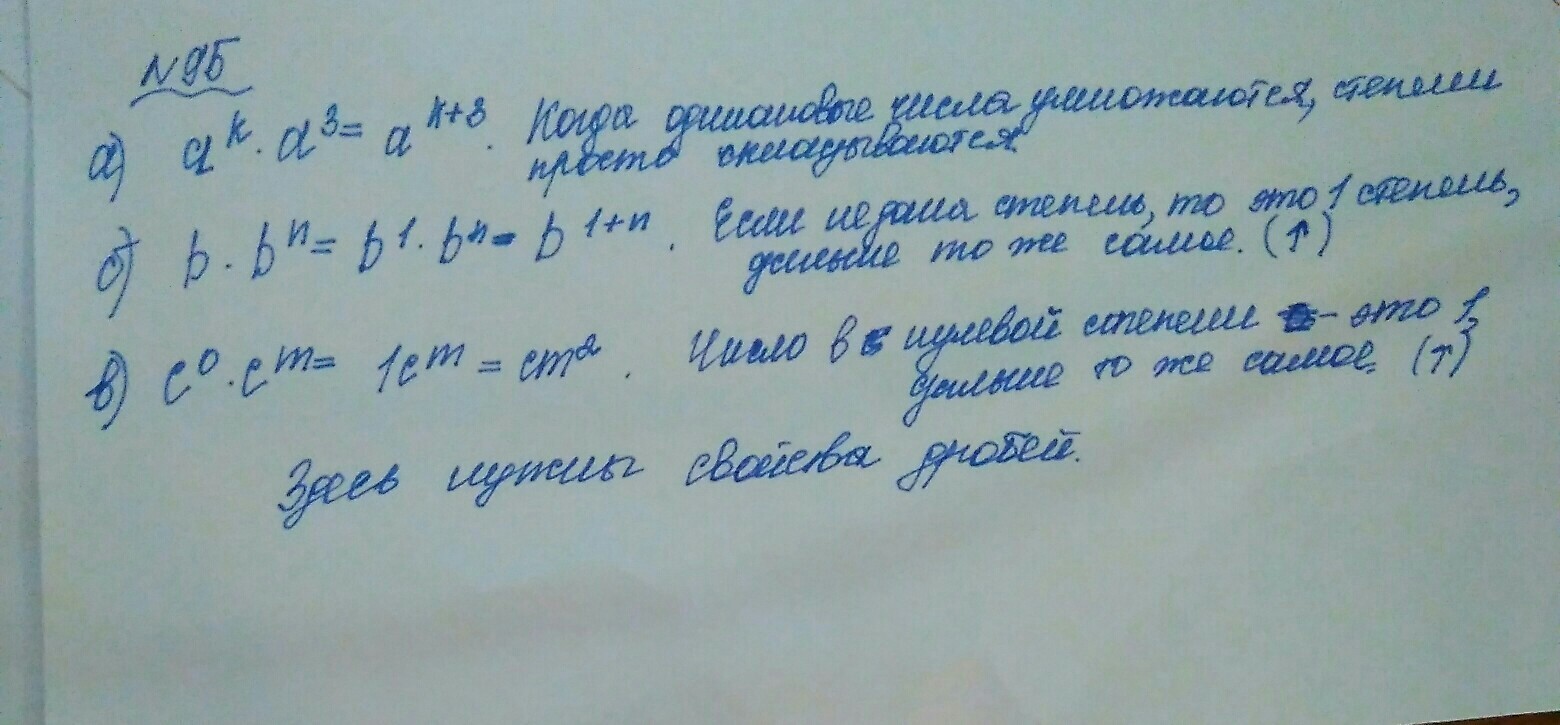 N9Б
а) a^k · a^3 = a^{k+3}. Когда одинаковые числа умножаются, степени
просто складываются.
б) b · b^n = b^1 · b^n = b^{1+n}. Если не дана степень, то это 1 степень,
дальше то же самое. (↑)
в) c^0 · c^m = 1c^m = cm^2. Число в нулевой степени - это 1,
дальше то же самое. (↑)
Здесь нужны свойства дробей.